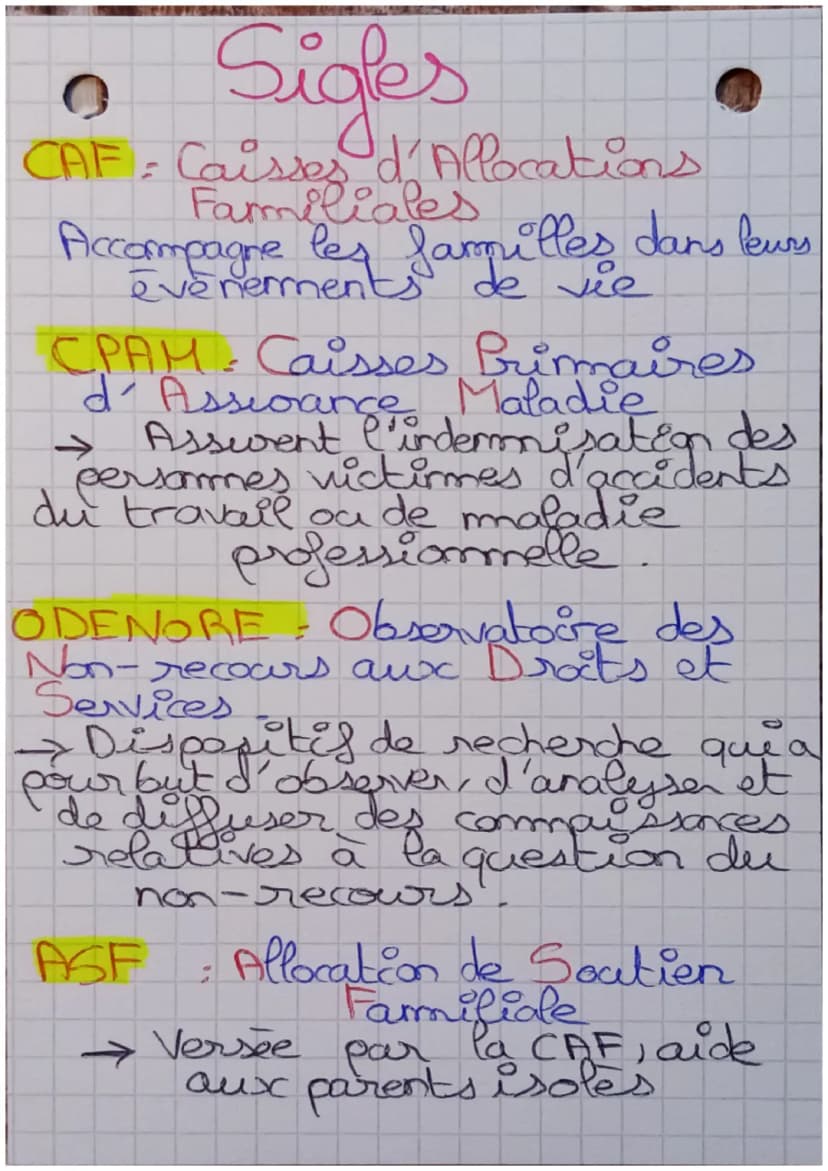 Sigles
CAF : Caisses d'Allocations
Familiales
Accompagne les familles dans leurs
évènements de vie
CPAM : Caisses Primaires
d'Assurance Maladie
→ Assurent l'indemnisation des
personnes victimes d'accidents
du travail ou de maladie
professionnelle.
ODENORE : Observatoire des
Non-recours aux Droits et
Services
→ Dispositif de recherche qui a
pour but d'observer, d'analyser et
de diffuser des connaissances
relatives à la question du
non-recours.
ASF : Allocation de Soutien
Familiale
→ Versée par la CAF, aide
aux parents isolés